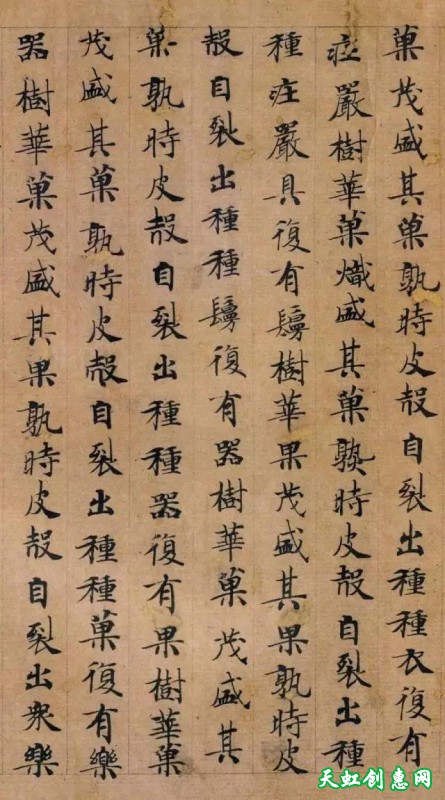 菓茂盛其菓孰時皮殼自裂出種種衣復有
㽵嚴樹華菓熾盛其菓熟時皮殼自裂出種
種㽵嚴具復有鬘樹華果茂盛其果孰時皮
殼自裂出種種鬘復有器樹華菓茂盛其
菓孰時皮殼自裂出種種器復有果樹華菓
茂盛其菓孰時皮殼自裂出種種菓復有樂
器樹華菓茂盛其果孰時皮殼自裂出眾樂
天虹创惠网